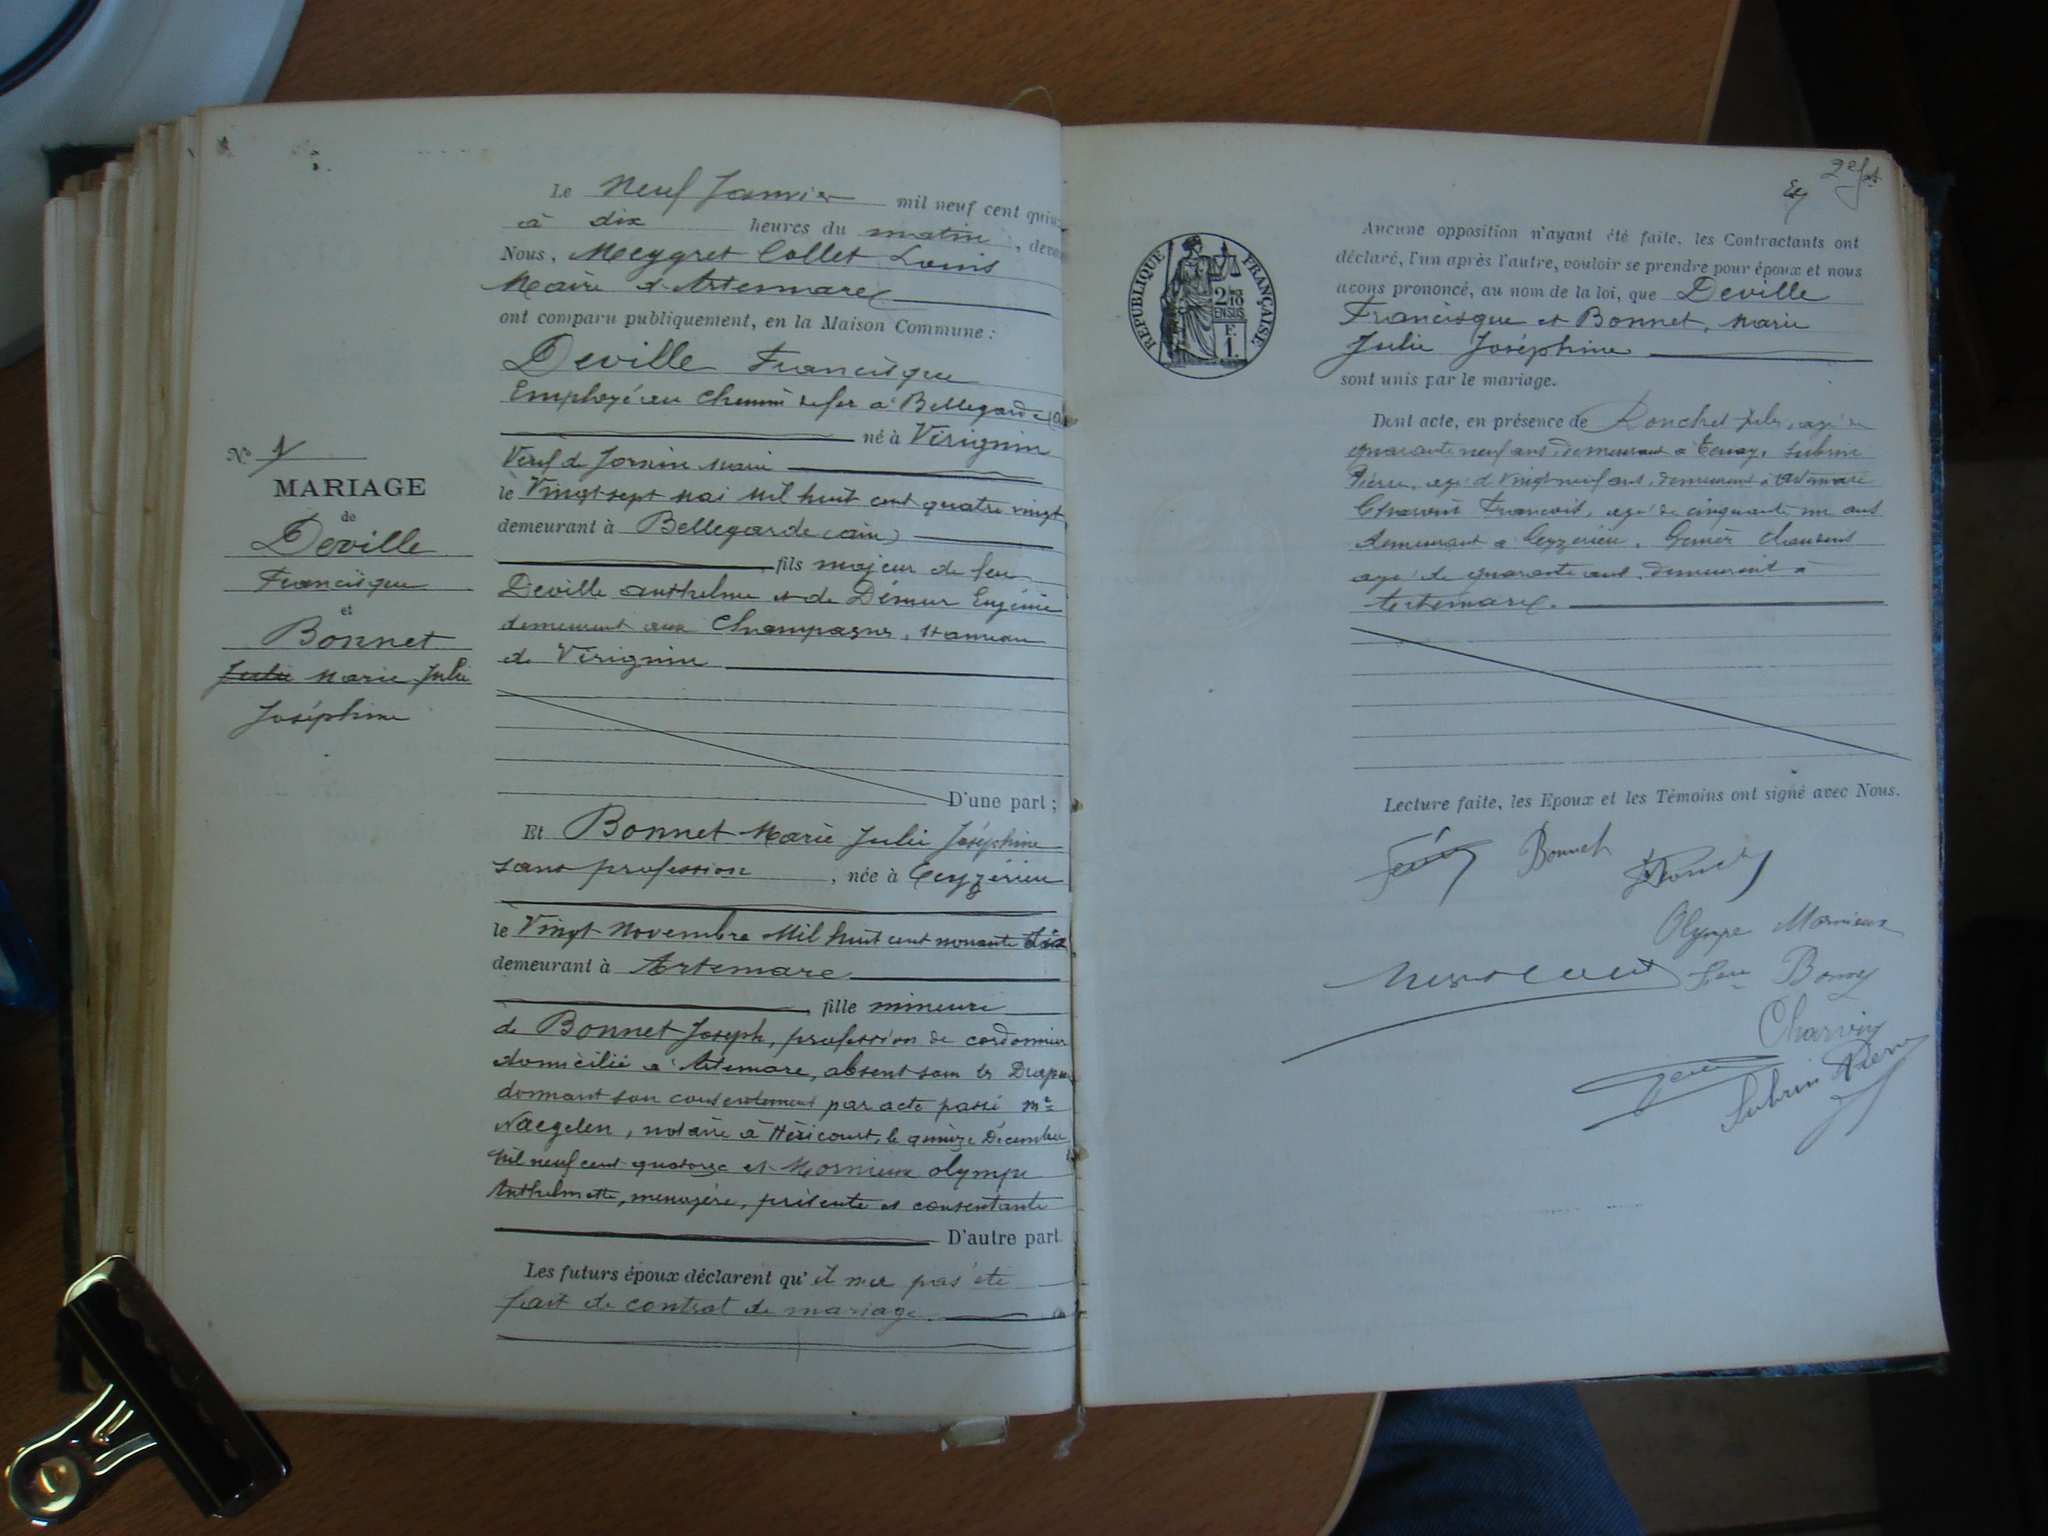 Le Neuf Janvier mil neuf cent quin
à dix heures du matin, deva
Nous, Meygret Collet Louis
Maire d'Artemare
ont comparu publiquement, en la Maison Commune :
Deville Francisque
Employé au chemin de fer à Bellegarde
né à Virignin
Veuf de Jornin Marie
le Vingt sept Mai Mil huit cent quatre vingt
demeurant à Bellegarde (ain)
fils majeur de feu
Deville Anthelme et de Eugénie
demeurant aux Champagnes, Hameau
de Virignin
D'une part ;
Nº 1
MARIAGE
de
Deville
Francisque
et
Bonnet
Julie Marie Julie
Joséphine
Et Bonnet Marie Julie Joséphine
sans profession, née à Ceyzérieu
le Vingt Novembre Mil huit cent nonante six
demeurant à Artemare
fille mineure
de Bonnet Joseph, profession de cordonnier
domicilié à Artemare, absent sous les Drapea
donnant son consentement par acte passé Me
Naegelen, notaire à Héricourt, le quinze Décembre
Mil neuf cent quatorze et Mornieux Olympe
Anthelmette, menagère, présente et consentante
D'autre part.
Les futurs époux déclarent qu'il n'a pas été
fait de contrat de mariage.
2e
REPUBLIQUE FRANÇAISE
Aucune opposition n'ayant été faite, les Contractants ont
déclaré, l'un après l'autre, vouloir se prendre pour époux et nous
avons prononcé, au nom de la loi, que Deville
Francisque et Bonnet, Marie
Julie Joséphine
sont unis par le mariage.
Dont acte, en présence de Ronchet Jules, agé de
quarante neuf ans, demeurant à Subrin
Pierre, agé de Vingt neuf ans, demeurant à Artemare
Charvin François, agé de cinquante un ans
demeurant à Ceyzérieu,
agé de quarante ans, demeurant à
Artemare.
Lecture faite, les Epoux et les Témoins ont signé avec Nous.
Bonnet
Olympe Mornieux
Bonnet
Charvin
Subrin Pierre